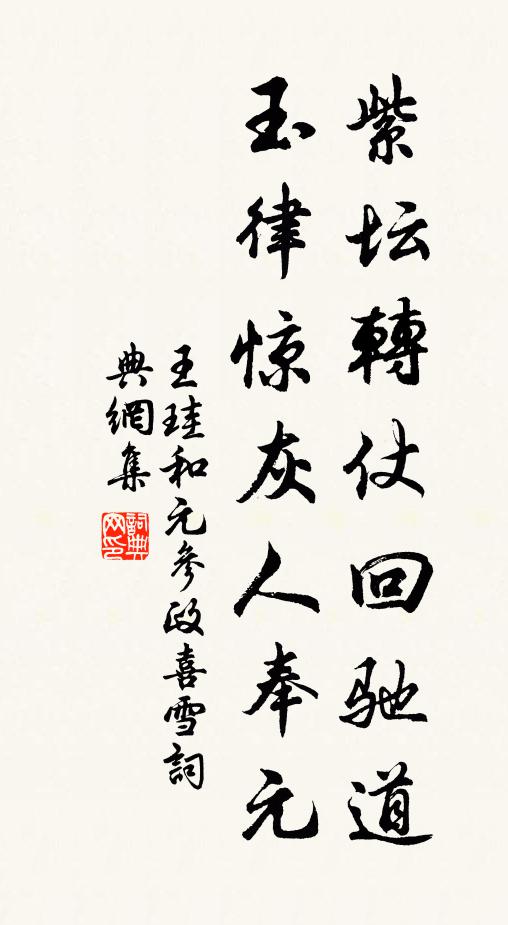 紫坛轉仗回驰道
玉律惊灰人奉元
王珪和元參政喜雪詞
典網集
詞典
网印